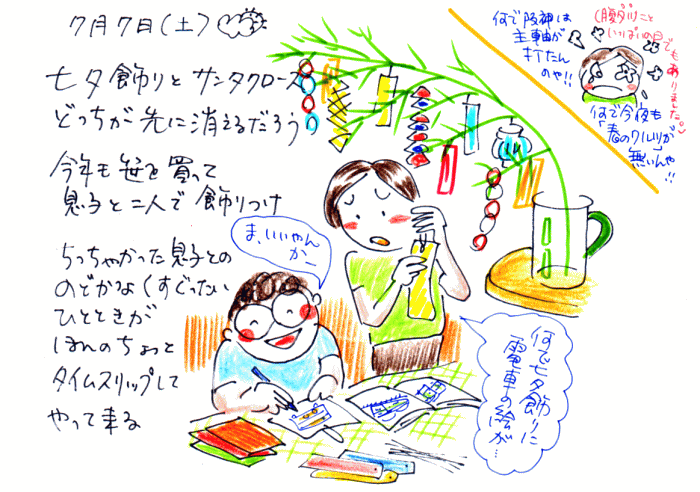 7月7日(土)
七夕飾りとサンタクロース
どっちが先に消えるだろう
今年も笹を買って
息子と二人で飾りつけ
ちっちゃかった息子との
のどかなくすぐったい
ひとときが
ほんのちょっと
タイムスリップして
やって来る
ま、いいやん
かー
何で七夕飾りに
電車の絵が…
何で阪神は
主軸が
打たん
のや!!
(腹ダリこと
いっぱいの日
でもありました。)
何で今夜も
「春のワルツ」が
無いんや
!!